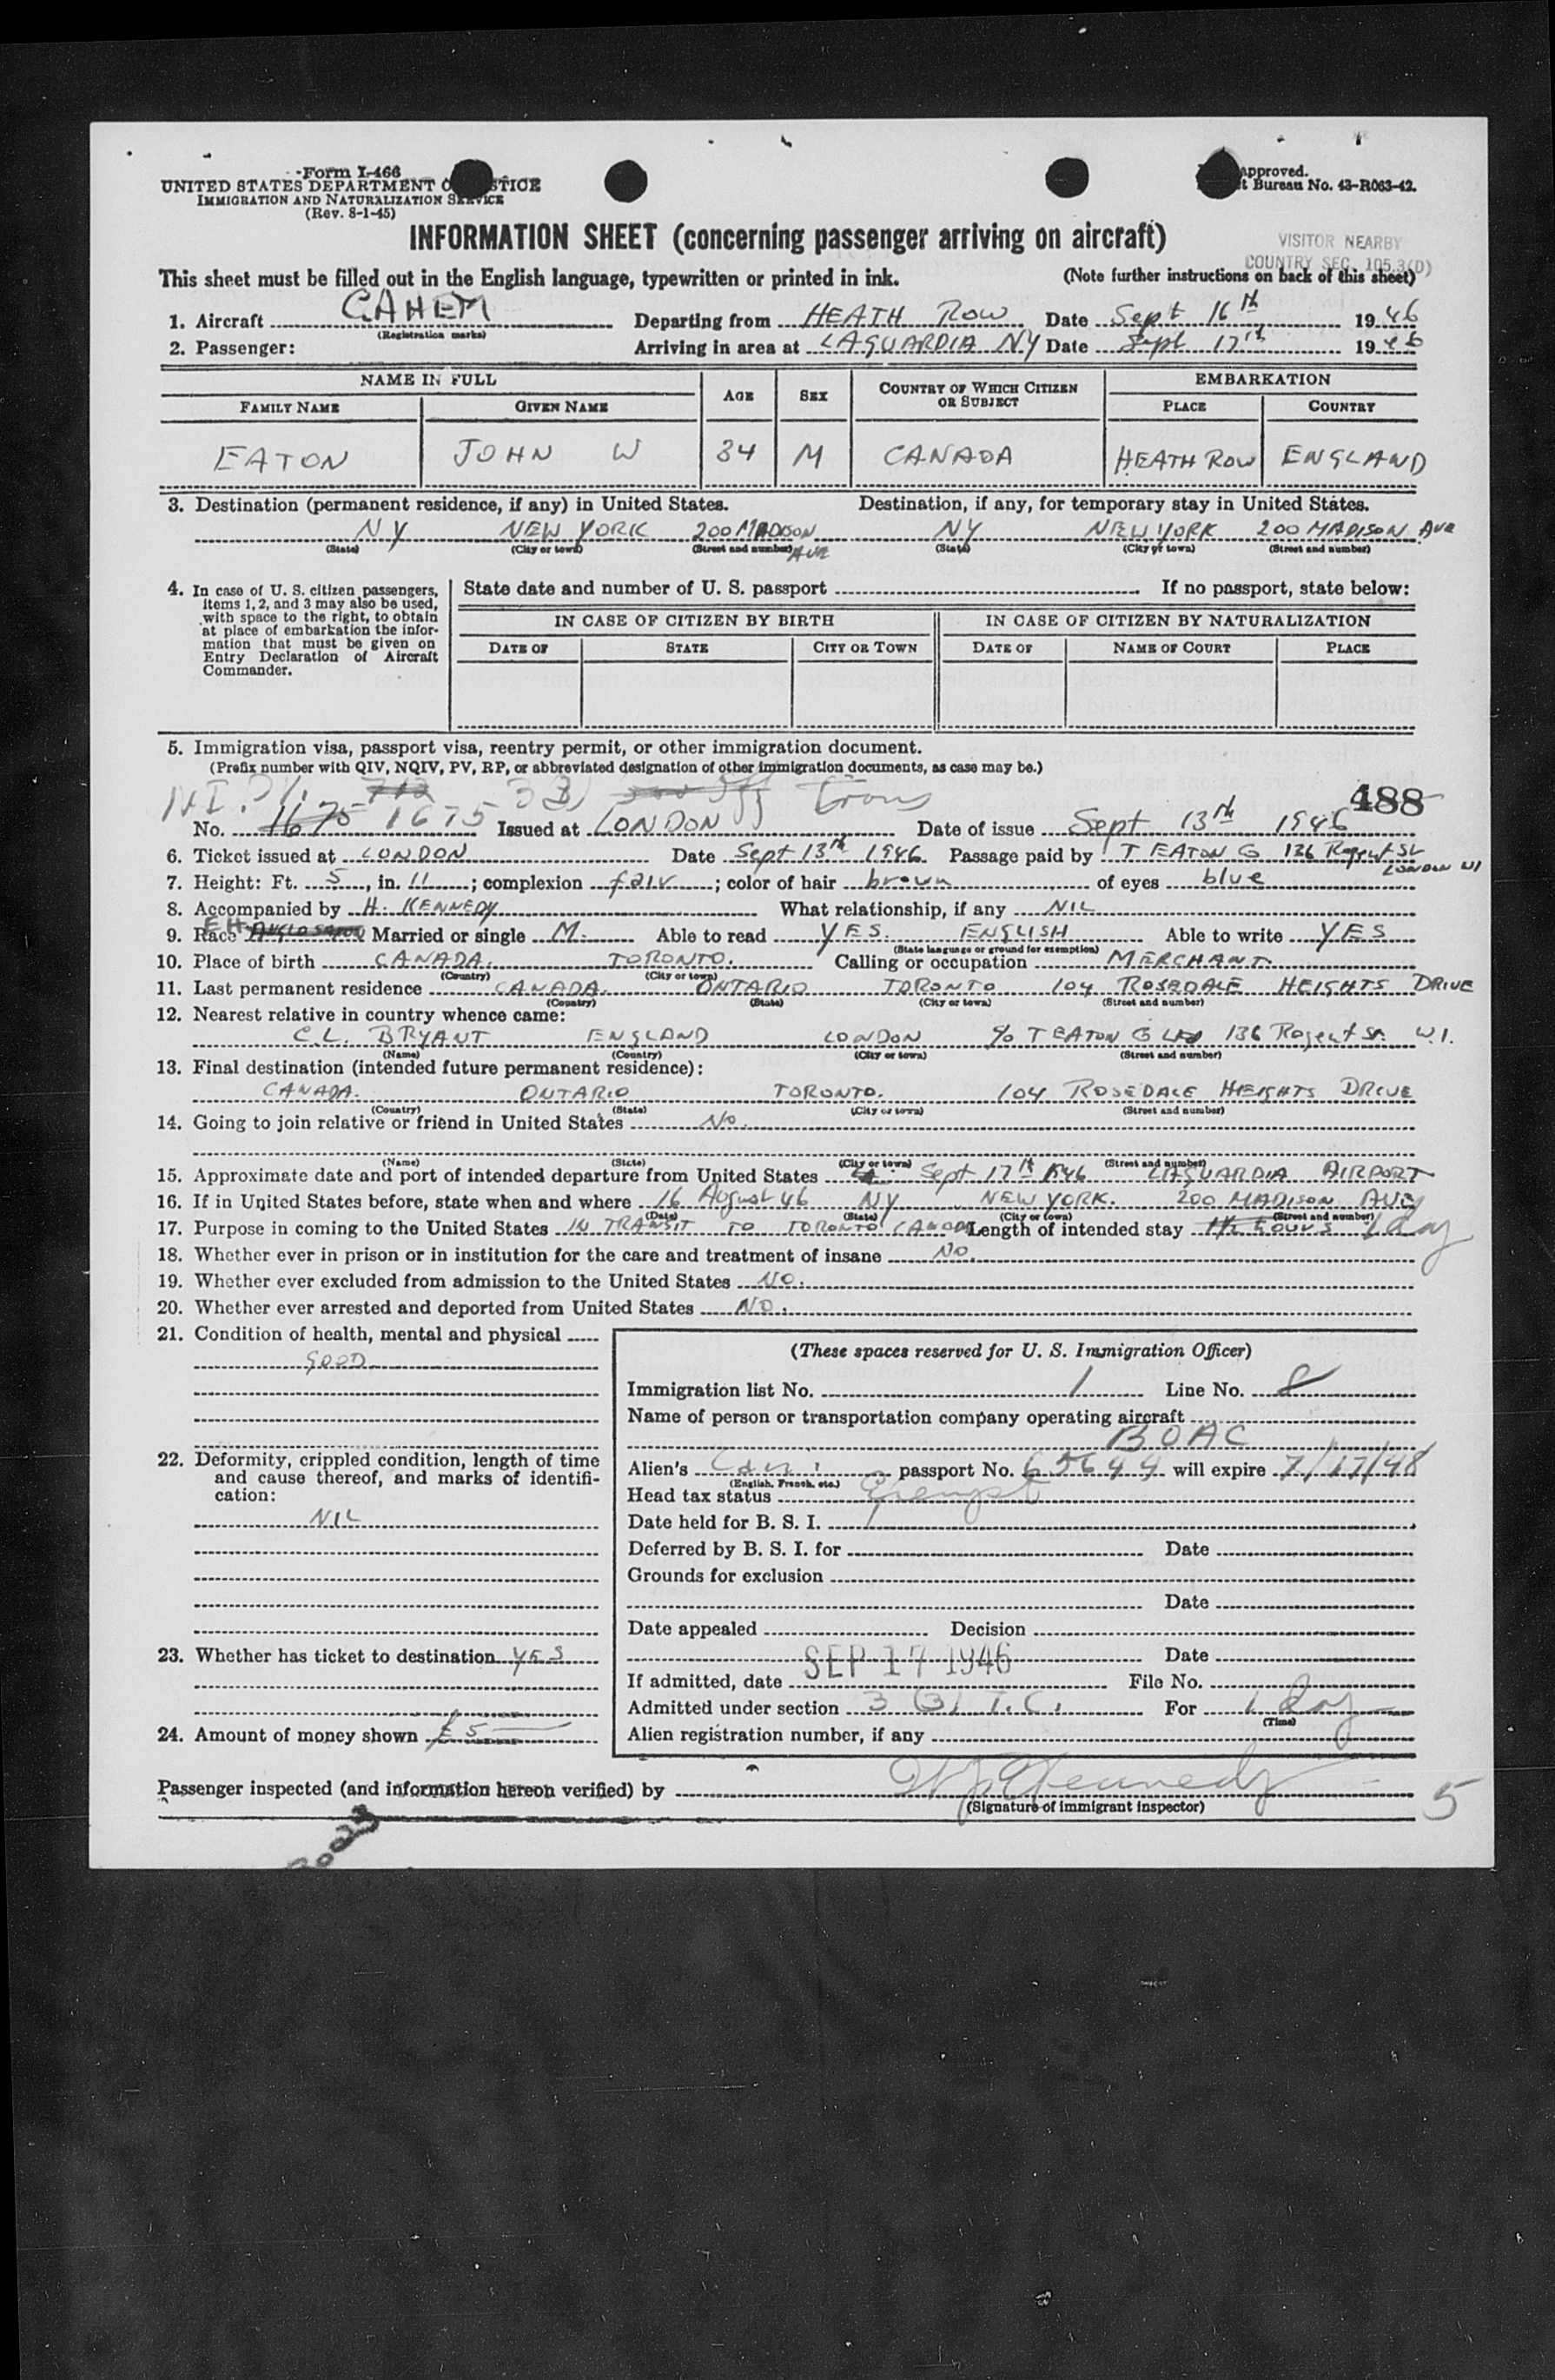 Form I-466
UNITED STATES DEPARTMENT O STICE
IMMIGRATION AND NATURALIZATION SERVICE
(Rev. 8-1-45)
approved.
t Bureau No. 43-R063-42.
INFORMATION SHEET (concerning passenger arriving on aircraft)
VISITOR NEARBY
COUNTRY SEC. 105.3(D)
This sheet must be filled out in the English language, typewritten or printed in ink. (Note further instructions on back of this sheet)
1. Aircraft GAHEM Departing from HEATH ROW Date Sept 16th 1946
(Registration marks)
2. Passenger: Arriving in area at LAGUARDIA NY Date Sept 17th 1946
NAME IN FULL AGE SEX COUNTRY OF WHICH CITIZEN OR SUBJECT EMBARKATION
FAMILY NAME GIVEN NAME PLACE COUNTRY
EATON JOHN W 34 M CANADA HEATH ROW ENGLAND
3. Destination (permanent residence, if any) in United States. Destination, if any, for temporary stay in United States.
NY NEW YORK 200 MADISON AVE NY NEW YORK 200 MADISON AVE
(State) (City or town) (Street and number) (State) (City or town) (Street and number)
4. In case of U. S. citizen passengers, items 1, 2, and 3 may also be used, with space to the right, to obtain at place of embarkation the information that must be given on Entry Declaration of Aircraft Commander.
State date and number of U. S. passport If no passport, state below:
IN CASE OF CITIZEN BY BIRTH IN CASE OF CITIZEN BY NATURALIZATION
DATE OF STATE CITY OR TOWN DATE OF NAME OF COURT PLACE
5. Immigration visa, passport visa, reentry permit, or other immigration document.
(Prefix number with QIV, NQIV, PV, RP, or abbreviated designation of other immigration documents, as case may be.)
488
No. 1675 1675 Issued at LONDON Date of issue Sept 13th 1946
6. Ticket issued at LONDON Date Sept 13th 1946 Passage paid by T EATON Co 136 Regent St
LONDON W1
7. Height: Ft. 5, in. 11; complexion fair; color of hair brown of eyes blue
8. Accompanied by H. KENNEDY What relationship, if any NIL
9. Race ANGLO SAXON Married or single M. Able to read YES. ENGLISH Able to write YES
(State language or ground for exemption)
10. Place of birth CANADA. TORONTO. Calling or occupation MERCHANT.
(Country) (City or town)
11. Last permanent residence CANADA. ONTARIO TORONTO 104 ROSEDALE HEIGHTS DRIVE
(Country) (State) (City or town) (Street and number)
12. Nearest relative in country whence came:
C.L. BRYANT ENGLAND LONDON c/o T EATON Co LTD 136 Regent St. W.1.
(Name) (Country) (City or town) (Street and number)
13. Final destination (intended future permanent residence):
CANADA. ONTARIO TORONTO. 104 ROSEDALE HEIGHTS DRIVE
(Country) (State) (City or town) (Street and number)
14. Going to join relative or friend in United States No.
(Name) (State) (City or town) (Street and number)
15. Approximate date and port of intended departure from United States Sept 17th 1946 LAGUARDIA AIRPORT
16. If in United States before, state when and where 16 August 46 NY NEW YORK. 200 MADISON AVE
(Date) (State) (City or town) (Street and number)
17. Purpose in coming to the United States IN TRANSIT TO TORONTO CANADA Length of intended stay 1½ hours 1 day
18. Whether ever in prison or in institution for the care and treatment of insane No.
19. Whether ever excluded from admission to the United States NO.
20. Whether ever arrested and deported from United States NO.
21. Condition of health, mental and physical
GOOD
(These spaces reserved for U. S. Immigration Officer)
Immigration list No. 1 Line No. 8
Name of person or transportation company operating aircraft
BOAC
22. Deformity, crippled condition, length of time and cause thereof, and marks of identification:
NIL
Alien's Can. passport No. 65644 will expire 7/17/48
(English, French, etc.)
Head tax status Exempt
Date held for B. S. I.
Deferred by B. S. I. for Date
Grounds for exclusion
Date
Date appealed Decision
23. Whether has ticket to destination YES
Date
SEP 17 1946
If admitted, date File No.
Admitted under section 3 (3) I.C. For 1 day
(Time)
24. Amount of money shown £5
Alien registration number, if any
Passenger inspected (and information hereon verified) by Kennedy
(Signature of immigrant inspector)
5